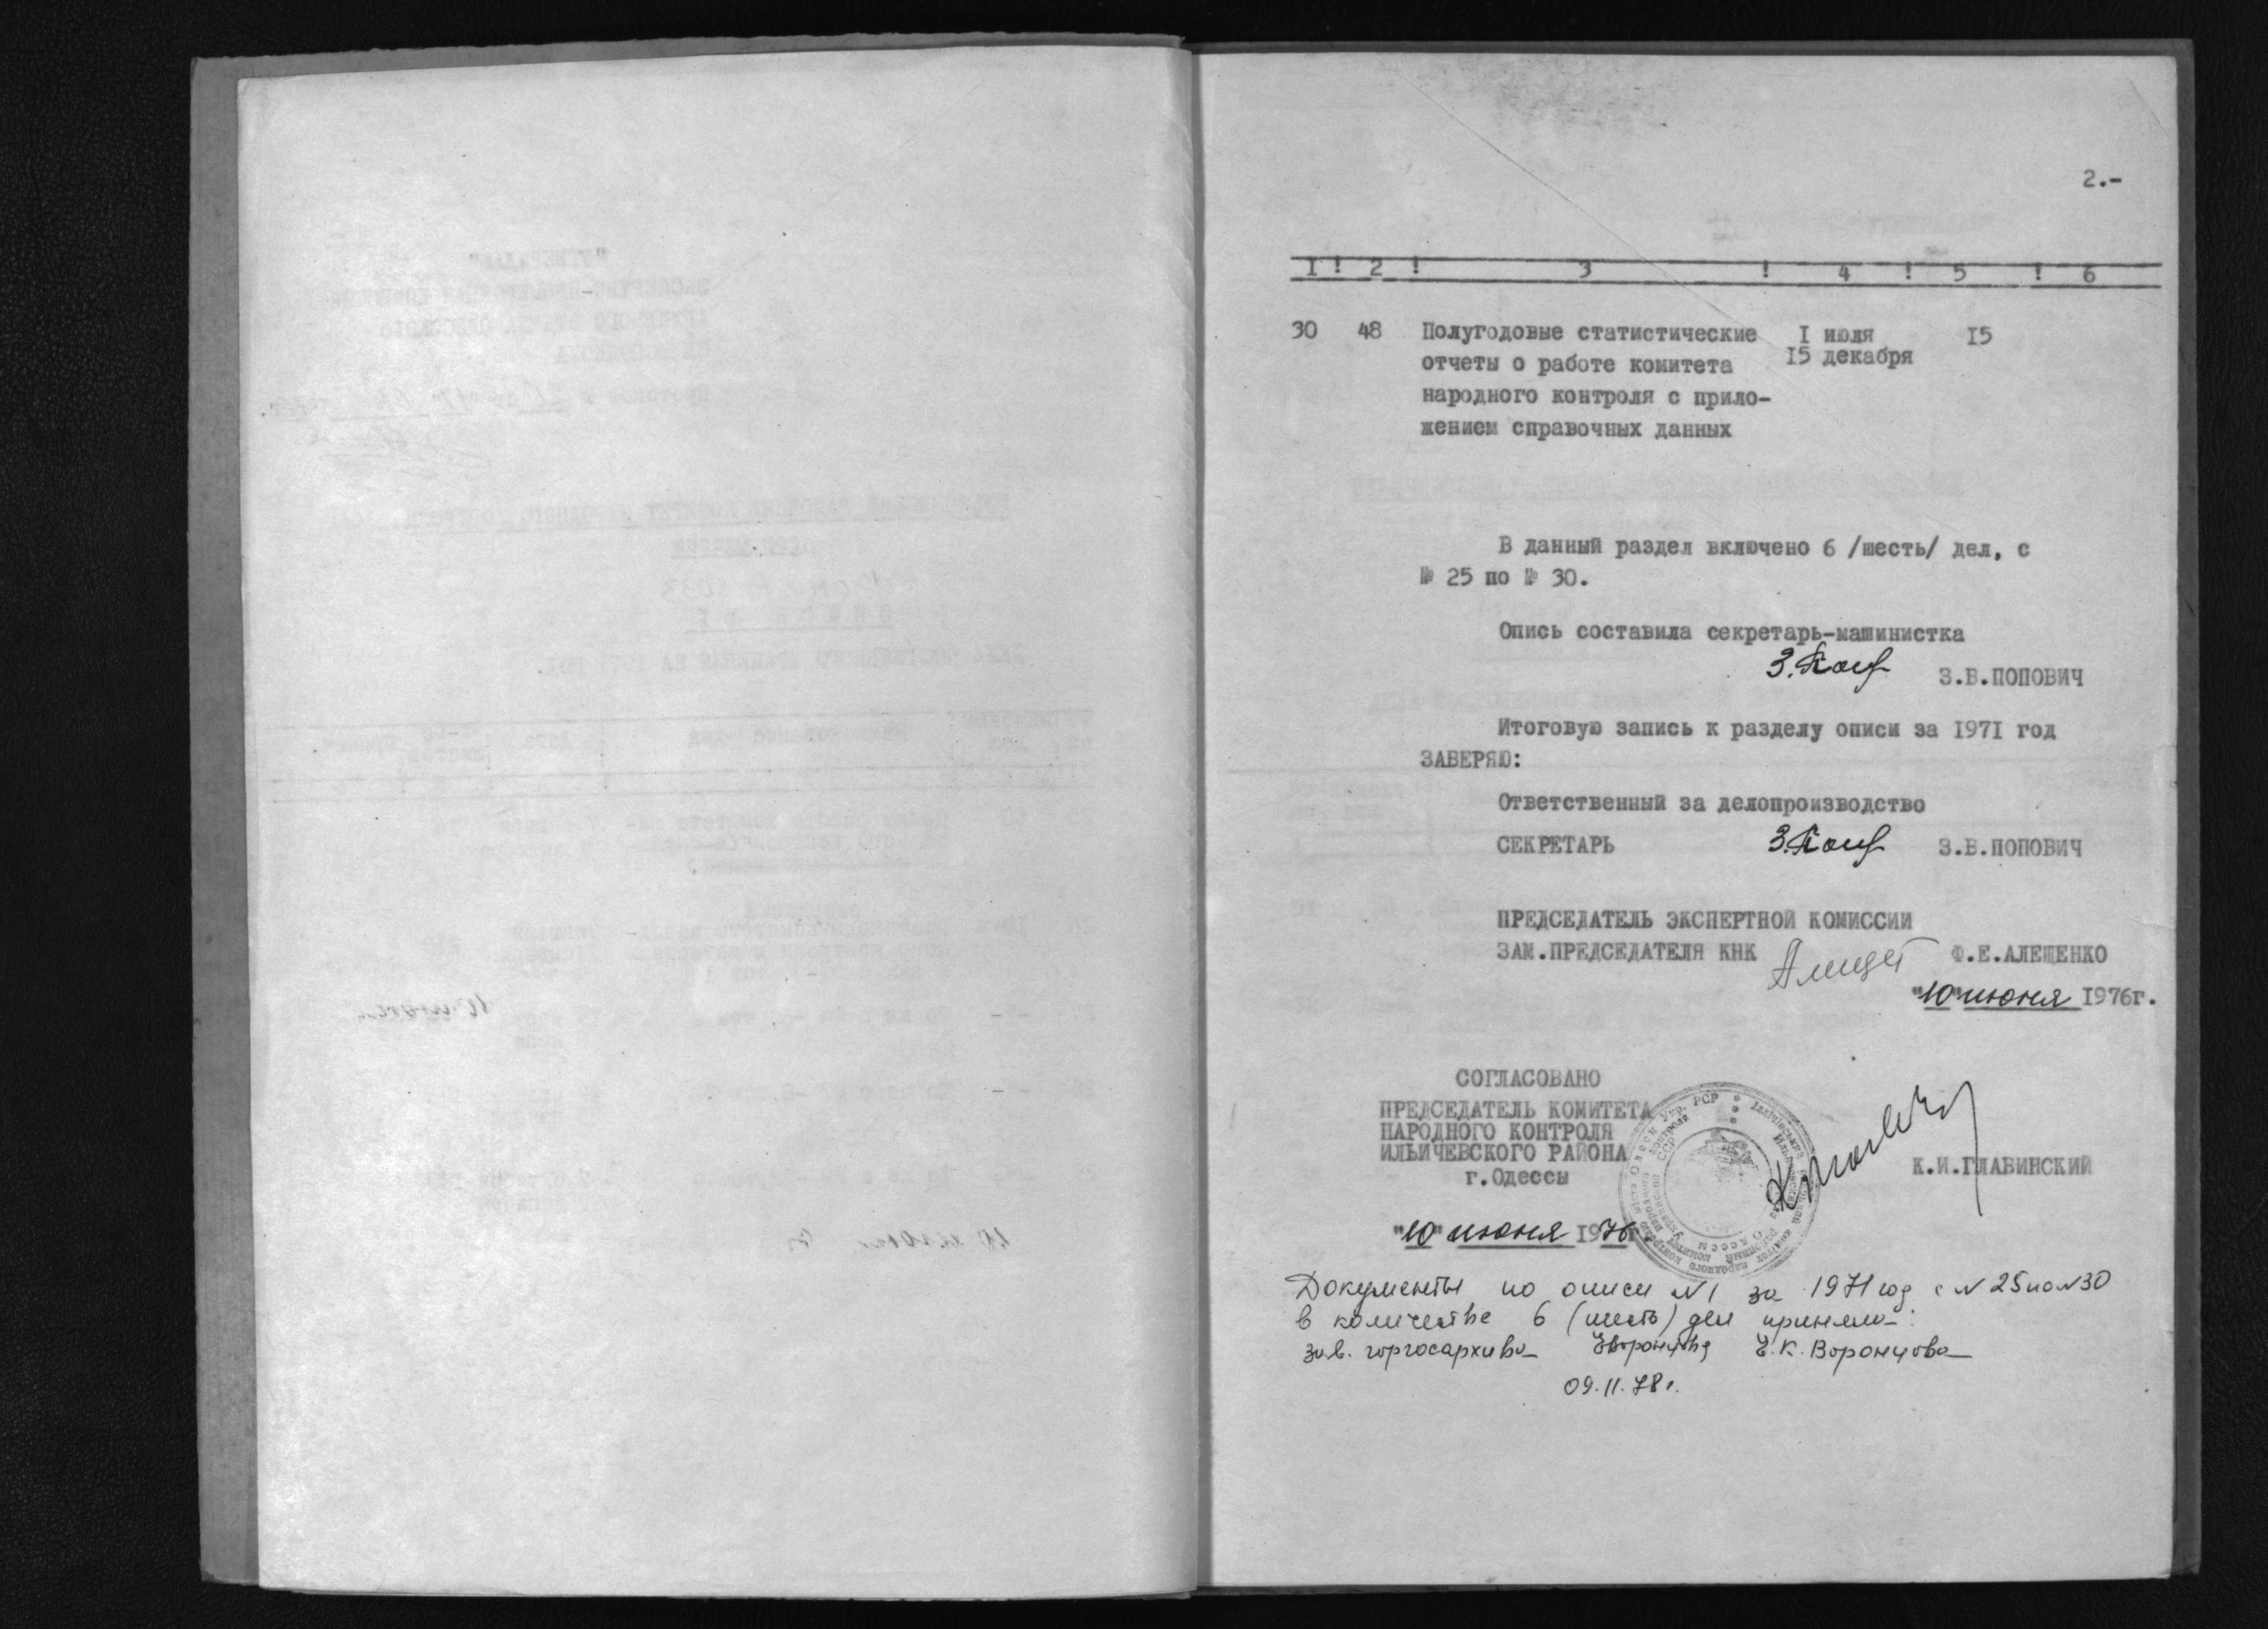 2.-
I ! 2 ! 3 ! 4 ! 5 ! 6
30 48 Полугодовые статистические I июля 15
отчеты о работе комитета I5 декабря
народного контроля с прило-
жением справочных данных
В данный раздел включено 6 /шесть/ дел, с
№ 25 по № 30.
Опись составила секретарь-машинистка
З.В.ПОПОВИЧ
Итоговую запись к разделу описи за 1971 год
ЗАВЕРЯЮ:
Ответственный за делопроизводство
СЕКРЕТАРЬ З.В.ПОПОВИЧ
ПРЕДСЕДАТЕЛЬ ЭКСПЕРТНОЙ КОМИССИИ
ЗАМ.ПРЕДСЕДАТЕЛЯ КНК Ф.Е.АЛЕЩЕНКО
"10" июня 1976г.
СОГЛАСОВАНО
ПРЕДСЕДАТЕЛЬ КОМИТЕТА
НАРОДНОГО КОНТРОЛЯ
ИЛЬИЧЕВСКОГО РАЙОНА
г.Одессы
К.И.ГЛАВИНСКИЙ
"10" июня 1976г.
Документы по описи N1 за 1971 год с N 25 по N30
в количестве 6 (шесть) дел приняла:
зав. горгосархива Е.К. Воронцова
09.11.78г.